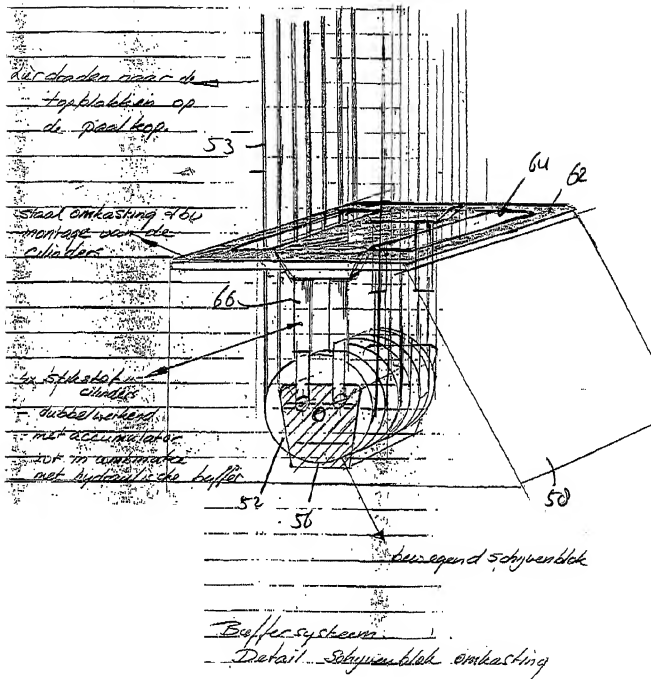 draden naar de
topblokken op
de paalkop.
53
64
62
staal omkasting tbv
montage van de
cilinders
66
4x stikstof
cilinders
- dubbelwerkend
- met accumulator
met hydraulische buffer
52
56
58
bewegend schijvenblok
Buffersysteem.
Detail Schijvenblok omkasting